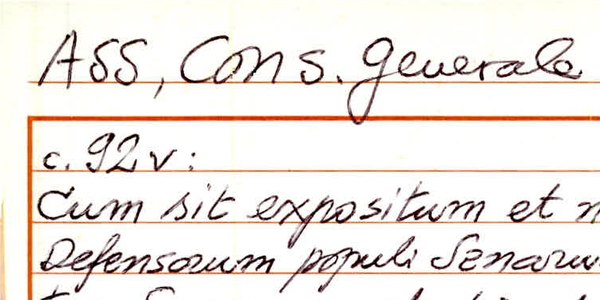 ASS, Cons. Generale
c. 92v:
Cum sit expositum et
Defensorum populi